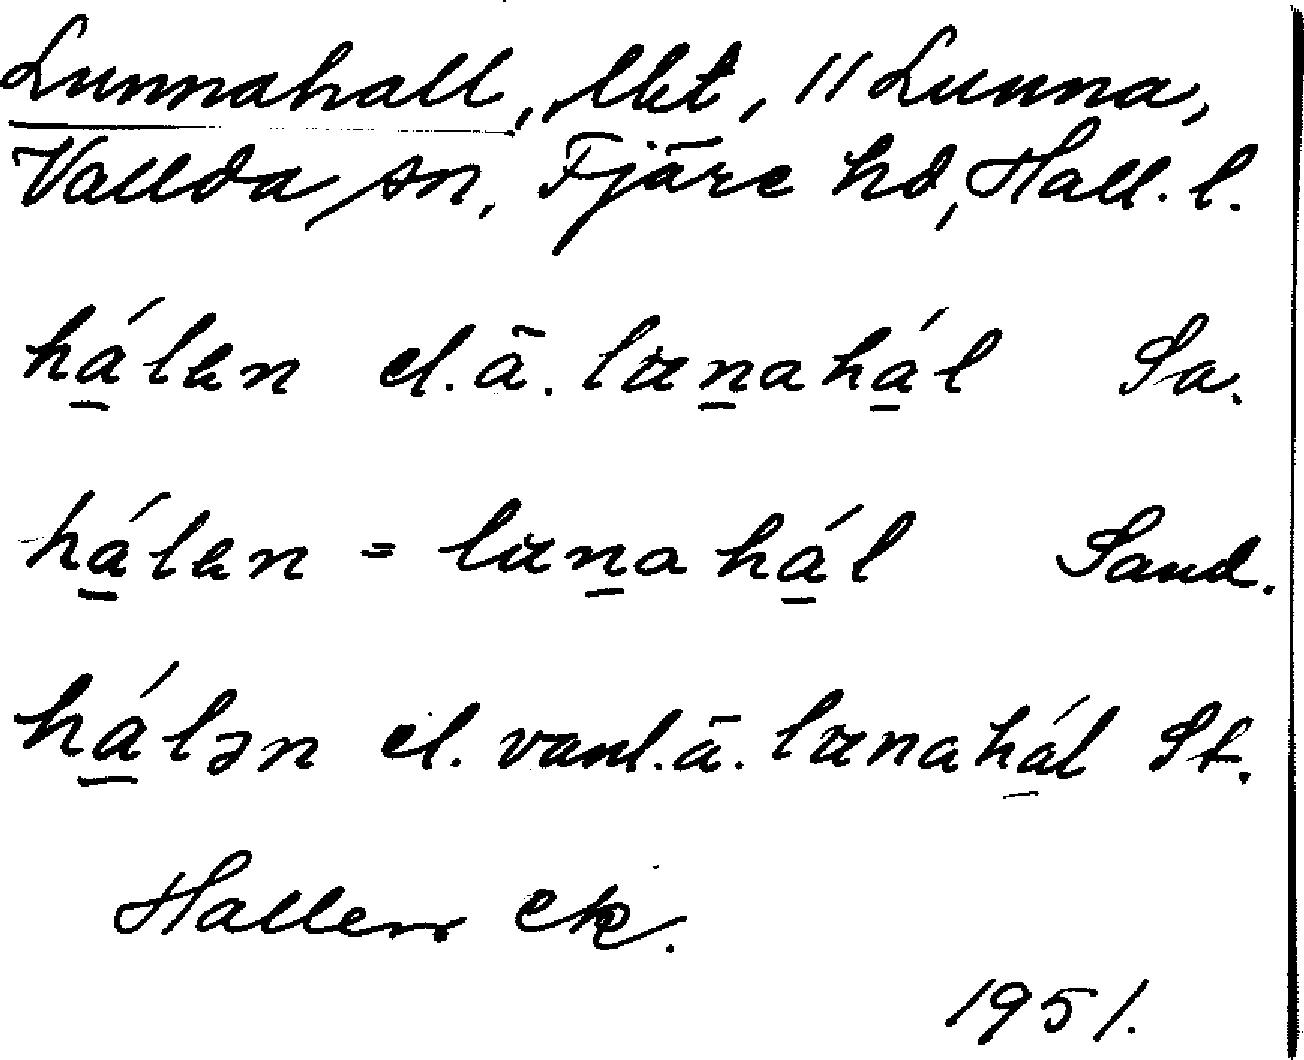 Lunnahall, lht, 11 Lunna,
Vallda sn, Fjäre hd, Hall. l.
há̱len el. ä. lɯṉahá̱l Sa.
há̱len = lɯṉahá̱l Sand.
há̱lən el. vanl. ä. lɯnahá̱l St.
Hallen ek.
1951.